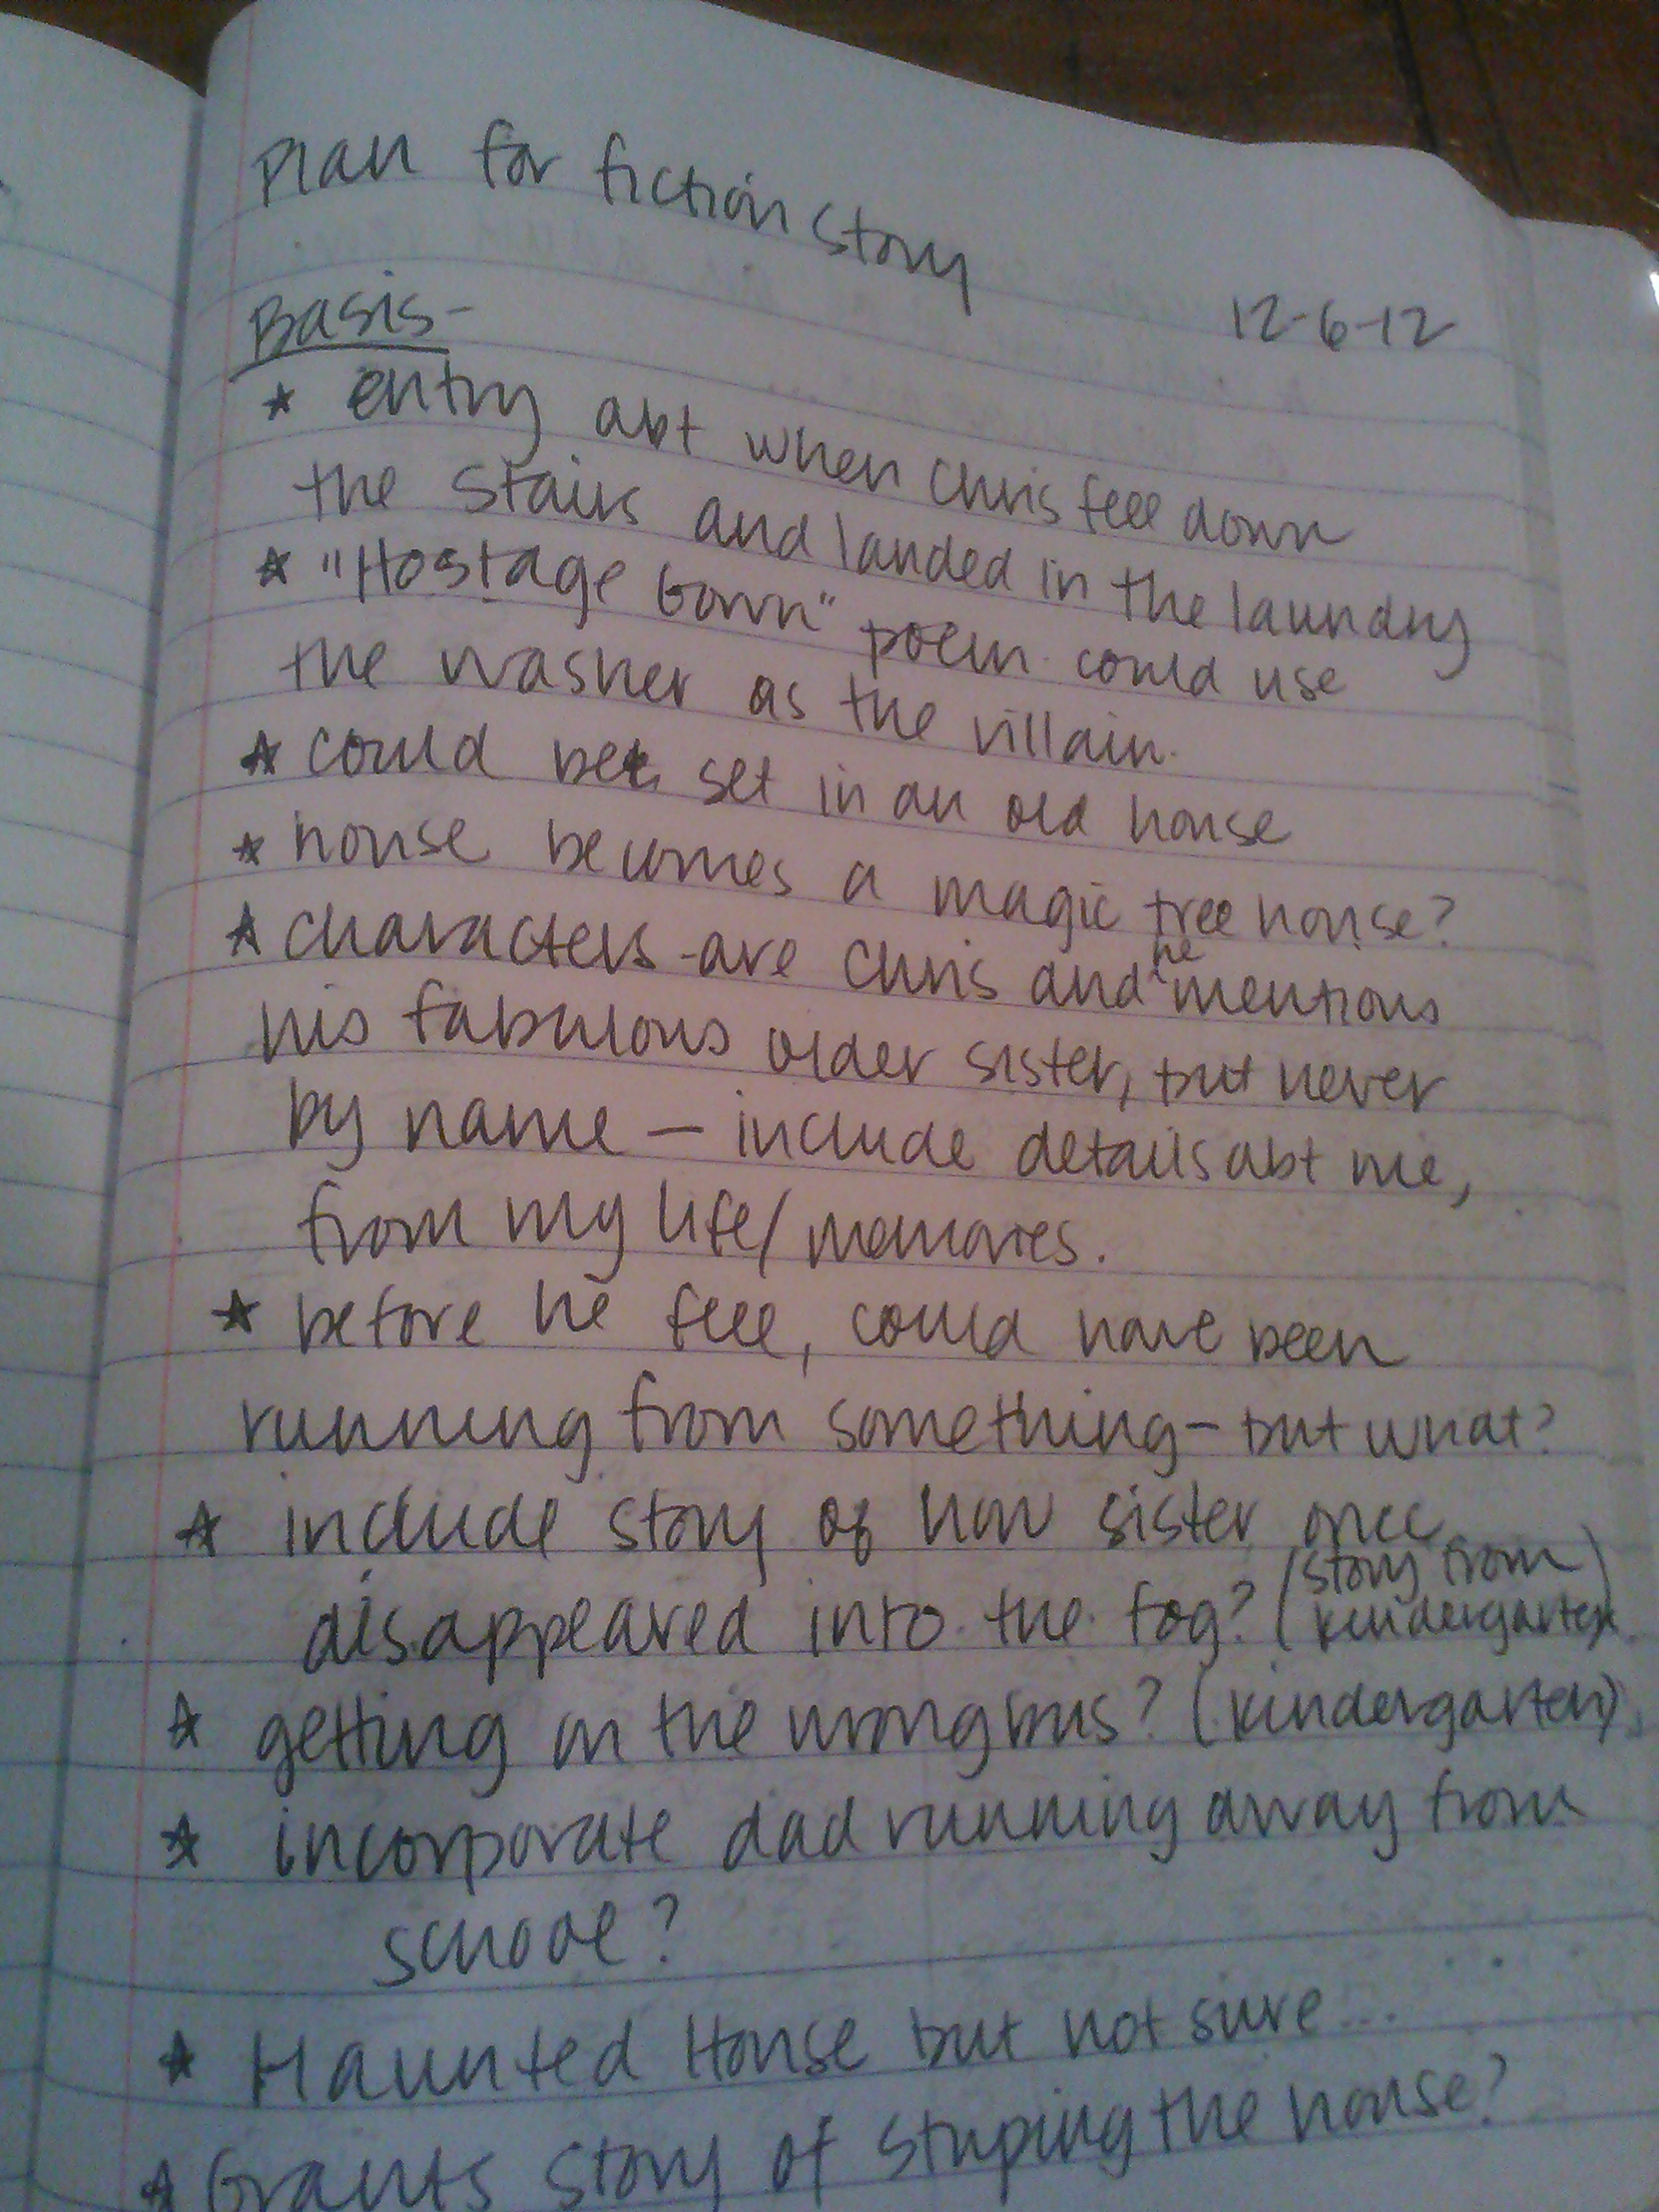 Plan for fiction story
12-6-12
Basis-
★ entry abt when Chris fell down
the stairs and landed in the laundry
★ "Hostage Gown" poem could use
the washer as the villain.
★ could be set in an old house
★ house becomes a magic tree house?
★ characters - are Chris and he mentions
his fabulous older sister, but never
by name — include details abt me,
from my life/memories.
★ before he fell, could have been
running from something - but what?
★ include story of how sister once
disappeared into the fog? (story from
kindergarten)
★ getting on the wrong bus? (kindergarten)
★ incorporate dad running away from
school?
★ Haunted House but not sure...
★ Grants story of striping the house?